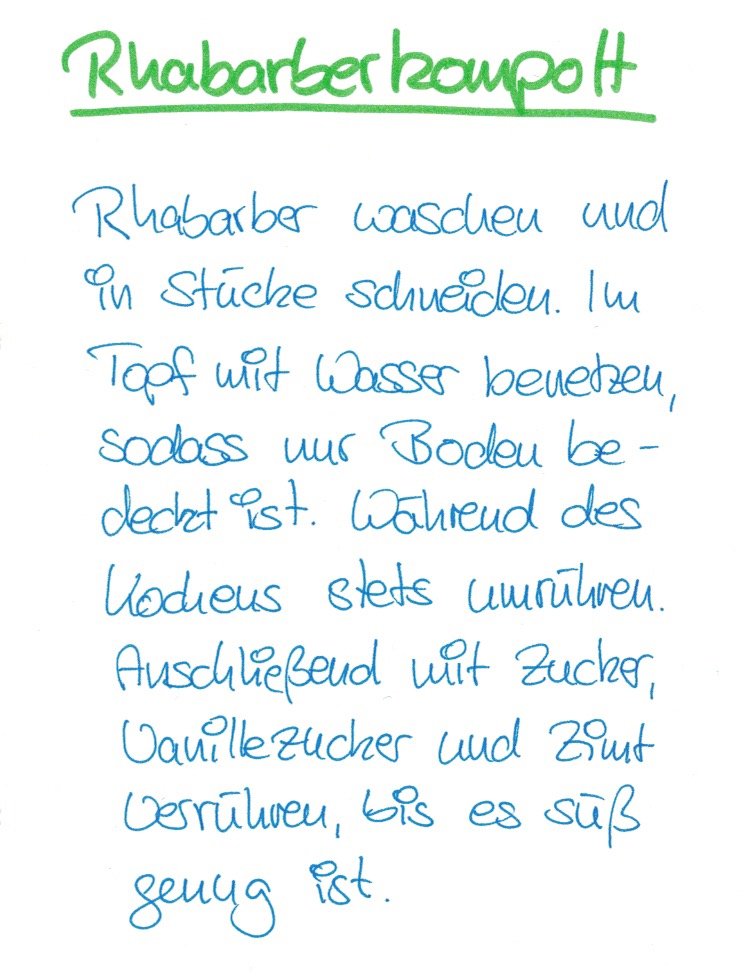 Rhabarberkompott
Rhabarber waschen und
in Stücke schneiden. Im
Topf mit Wasser benetzen,
sodass nur Boden be-
deckt ist. Während des
Kochens stets umrühren.
Anschließend mit Zucker,
Vanillezucker und Zimt
verrühren, bis es süß
genug ist.